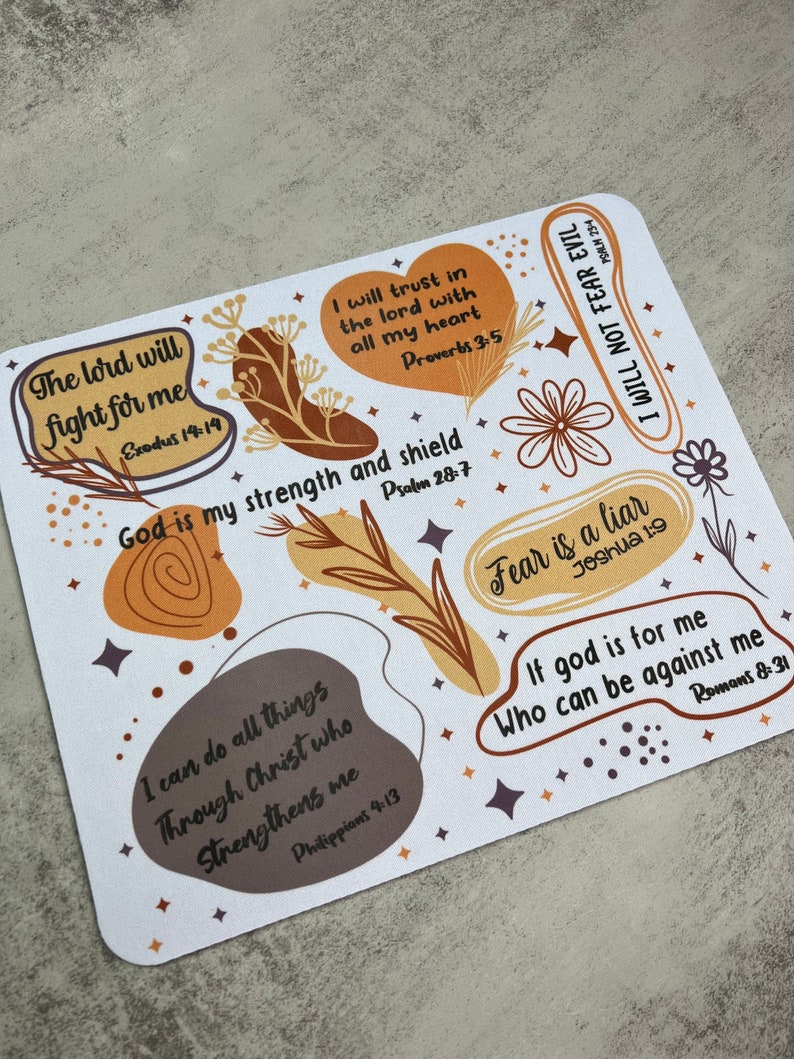 The lord will
fight for me
Exodus 14:14
I will trust in
the lord with
all my heart
Proverbs 3:5
I WILL NOT FEAR EVIL
PSALM 23:4
God is my strength and shield
Psalm 28:7
Fear is a liar
Joshua 1:9
If god is for me
Who can be against me
Romans 8:31
I can do all things
Through Christ who
Strengthens me
Philippians 4:13